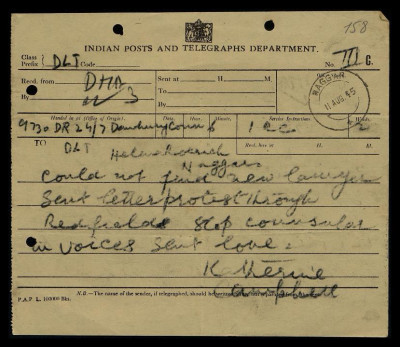 158
INDIAN POSTS AND TELEGRAPHS DEPARTMENT.
Class Prefix DLT Code
No. G.
Recd. from
By
Sent at H. M.
To
By
NAGGAR
11 AUG 45
Handed in at (Office of Origin).
Service Instructions.
9730 DR 24/7 Danbury Conn
TO DLT
Helena Roerich
Naggar
Could not find new lawyer
Sent letter protest through
Redfields stop consular
invoices sent love =
Katherine
Campbell
N.B.—The name of the sender, if telegraphed, should